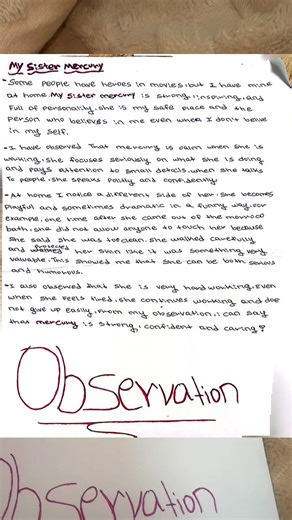 My Sister Mercury
-Some people have heroes in movies. but I have mine
at home. My sister mercury is strong, inspiring, and
full of personality. she is my safe place and the
person who believes in me even when I don't belive
in my self.
-I have observed That mercury is calm when she is
working. she focuses seriously on what she is doing
and pays attention to small details. when she talks
To people. she speaks politly and confidently
-At home I notice a different side of her. she becomes
Playful and sometimes dramatic in a funny way. for
example. one time after she came out of the morroco
bath. she did not allow anyone to touch her because
she said she was too clean. she walked carefully
and protected her skin like it was something very
valuable. This showed me that she can be both serious
and humorous.
-I also observed that she is very hard working. Even
when she feels tired. she continues working and doe
not give up easily. from my observation. i can say
that mercury is strong, confident and caring
Observation
observation